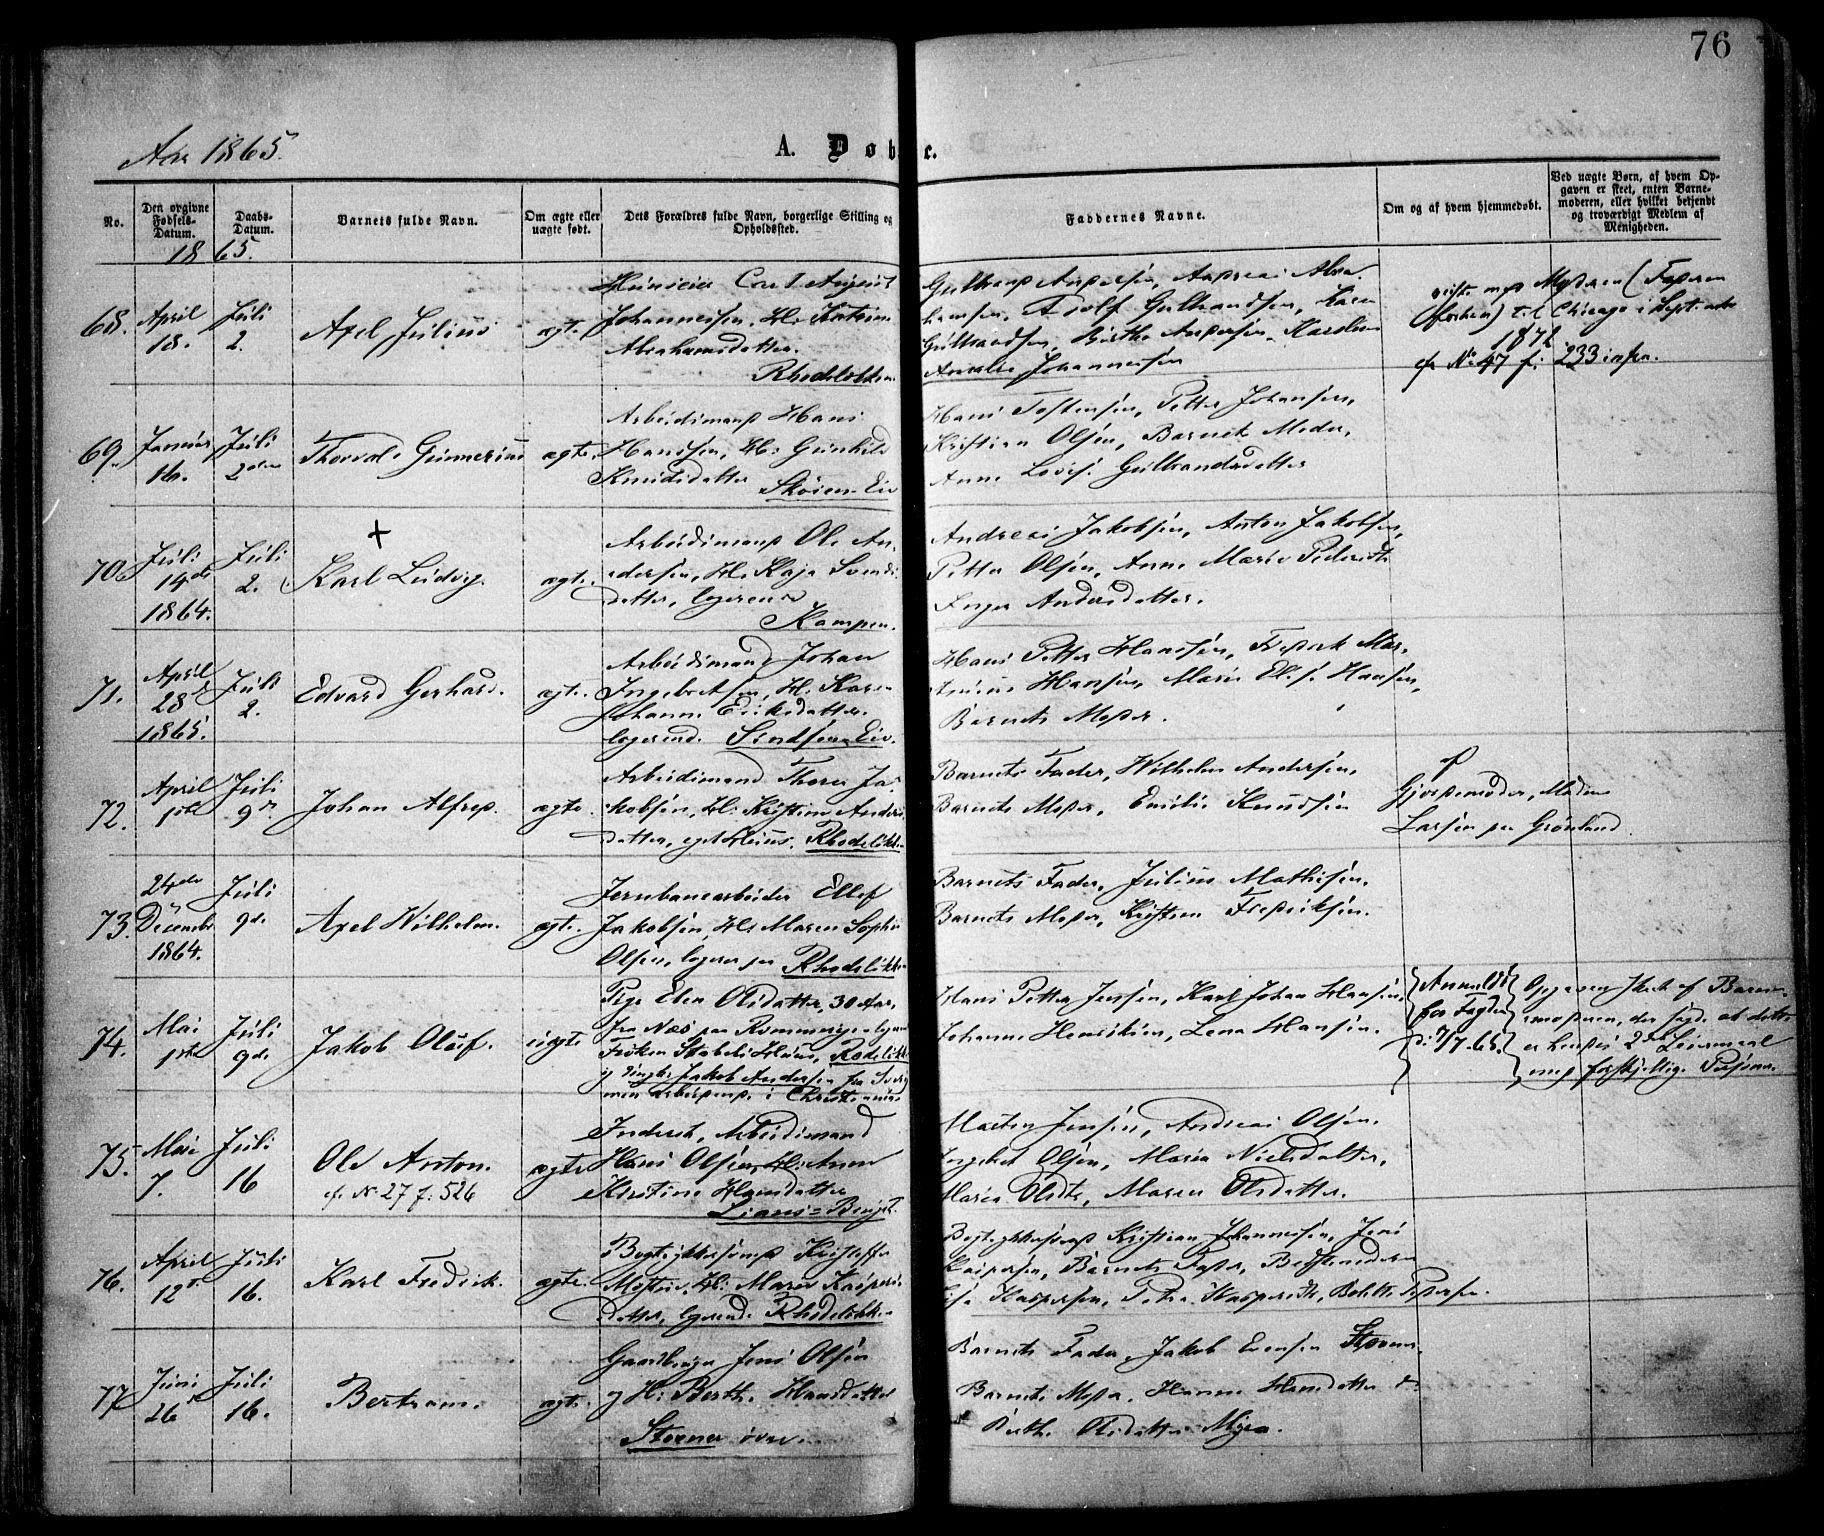 76
Aar 1865.
A. Døbte.
No.
Den opgivne Fødsels-Datum.
Daabs-Datum.
Barnets fulde Navn.
Om ægte eller uægte født.
Dets Forældres fulde Navn, borgerlige Stilling og Opholdssted.
Faddernes Navne.
Om og af hvem hjemmedøbt.
Ved uægte Børn, af hvem Opgaven er skeet, enten Barnemoderen, eller hvilket betjendt og troværdigt Medlem af Menigheden.
1865.
68.
April
18.
Juli
2.
Axel Julius
ægte.
August
Johannessen, H:
Abrahamsdatter.
Rhodeløkken
Gulbrand Andersen, Andreas Abra-
hamsen, Gulbrandsen, Karen
Gulbrandsen, Birthe Andersen, Karoline
Amalie Johannessen
reiste med Moderen (Faderen
til Chicago i Sept.
187
cfr No 47 f: 233 infra.
69.
Januar
16.
Juli
2den
Thorvald Gunnerius
ægte.
Arbeidsmand Hans
Hansen, H: Gunhild
Knudsdatter
Skøien Eie
Hans Tostensen, Petter Johansen,
Kristian Olsen, Barnets Moder,
Anne Lovise Gulbrandsdatter
70.
Juli
19de
1864.
Juli
2.
+
Karl Ludvig.
ægte.
Arbeidsmand Ole An-
dersen, H: Kaja Svends-
datter, logerende
Kampen.
Andreas Jakobsen, Anton Jakobsen,
Petter Olsen, Anne Marie Pedersdtr
Inger Andersdatter.
71.
April
28
1865.
Juli
2.
Edvard Gerhard.
ægte.
Arbeidsmand Johan
Ingebretsen, H: Karen
Johanne Eriksdatter.
logerend. Sinsen Eie.
Hans Petter Hansen, Fredrik Mar-
tinius Hansen, Marie Elise Hansen,
Barnets Moder.
72.
April
1ste
Juli
9de
Johan Alfred.
ægte.
Arbeidsmand Thore Ja-
kobsen, H: Kristine Anders-
datter, eget Huus. Rhodeløkken
Barnets Fader, Wilhelm Andersen,
Barnets Moder, Emilie Knudsen
Gjordemoder, Madam
Larsen paa Grønland.
73.
24de
December
1864.
Juli
9de.
Axel Wilhelm.
ægte.
Jernbanearbeider Ellef
Jakobsen, H: Maren Sophie
Olsen, logerer paa Rhodeløkken
Barnets Fader, Julius Mathisen.
Barnets Moder, Kristine Fredriksen.
74.
Mai
1ste
Juli
9de.
Jakob Oluf.
uægte
Pige Elen Olsdatter, 30 Aar,
fra Næs paa Rommerige
Frøken Stabels Huus, Rodeløkken
og Ungk. Jakob Andersen fra
Arbeidsmd. i Christiania
Hans Petter Jensen, Karl Johan Hansen,
Johanne Henriksen, Lena Hansen.
Anmeldt
for Fogden
d: 7/7.65.
Opgaven skeet af Barne-
moderen, der sagde at dette
er hendes 2det Leiermaal
med forskjellige Personer.
75.
Mai
7.
Juli
16
Ole Anton.
cfr No 27 f: 526
ægte
Inderst, Arbeidsmand
Hans Olsen, H: Anne
Kristine Hansdatter
Lians=Braget.
Morten Jensen, Andreas Olsen.
Ingebret Olsen, Maria Nielsdatter,
Maria Olsdtr, Maren Olsdatter.
76.
April
12te
Juli
16.
Karl Fredrik.
ægte.
Bogtrykkersvend Kristoffer
H: Maren Kaspers-
datter, logerende Rhodeløkken
Bogtrykkersvend Kristian Johannesen, Jens
Kaspersen, Barnets Fader, Bedstemoderen
Kaspersen, Petra Kaspersdtr, Pedersen.
77
Juni
26
Juli
16.
Bertram.
ægte.
Gaardbruger Jens Olsen
og H: Berthe Hansdatter
Stovner øvre.
Barnets Fader, Jakob Evensen Stovner.
Barnets Moder, Hanne Hansdatter
Berthe Olsdatter Myra.